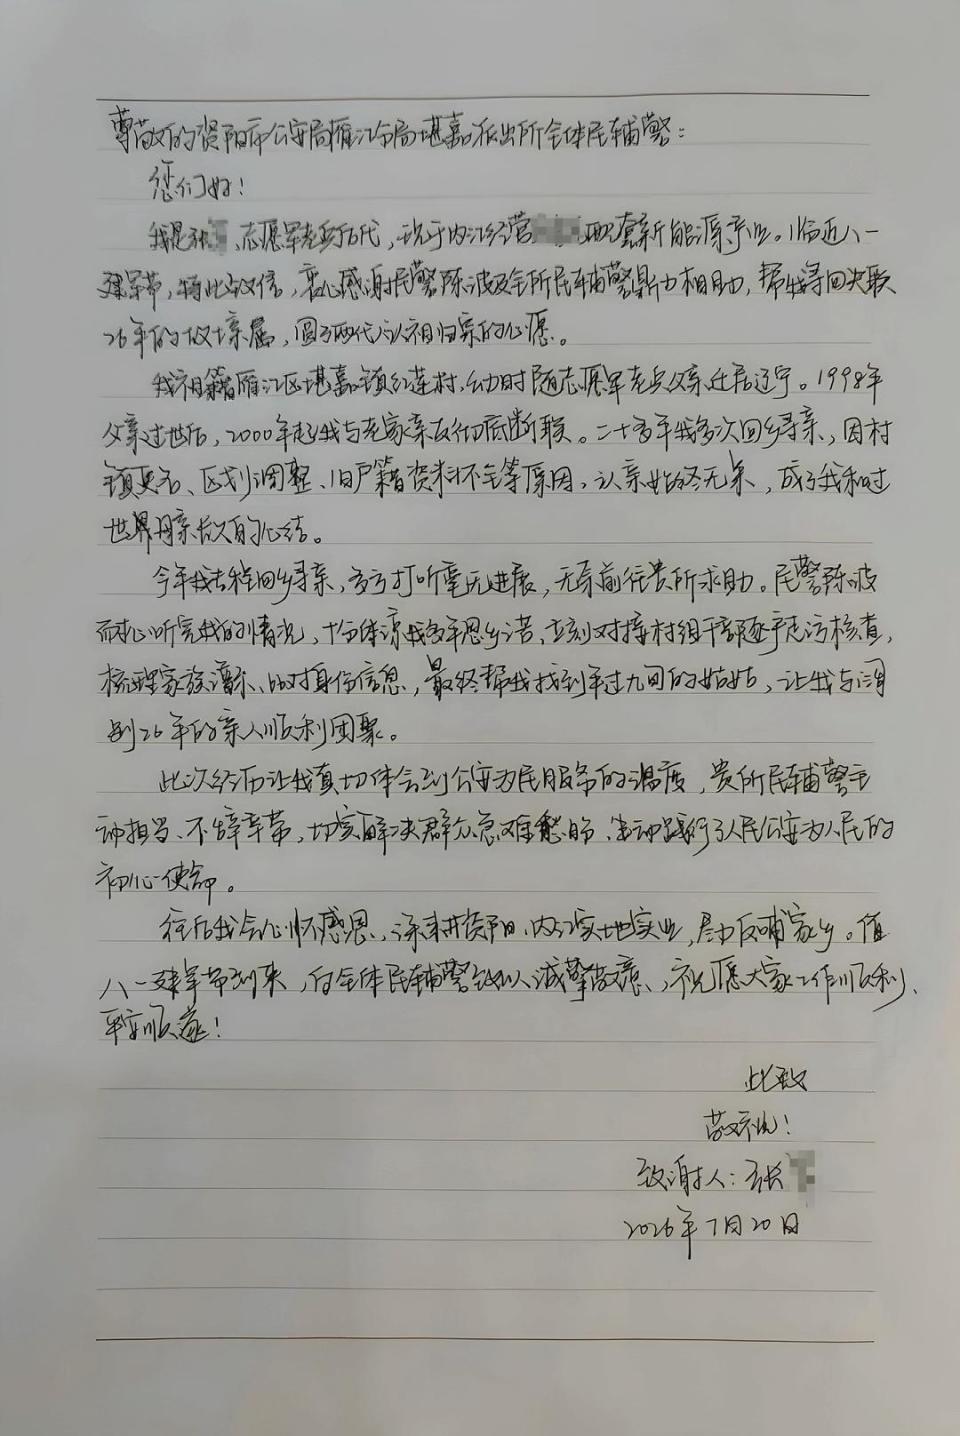 尊敬的资阳市公安局雁江分局堪嘉派出所全体民辅警：
您们好！
我是张、志愿军老兵后代，现于内江经营配套新能源产业。临近八一
建军节，特此致信，衷心感谢民警陈波及全所民辅警鼎力相助，帮我寻回失联
26年的故土亲属，圆了两代人认祖归宗的心愿。
我祖籍雁江区堪嘉镇红莲村，幼时随志愿军老兵父亲迁居辽宁。1998年
父亲过世后，2000年起我与老家亲友彻底断联。二十多年我多次回乡寻亲，因村
镇更名、区划调整、旧户籍资料不全等原因，认亲始终无果，成了我和过
世母亲长久的心结。
今年我专程回乡寻亲，多方打听毫无进展，无奈前往贵所求助。民警陈波
耐心听完我的情况，十分体谅我多年思乡之苦，立刻对接村组干部逐户走访核查，
梳理家族谱系、比对身份信息，最终帮我找到年过九旬的姑姑，让我与阔
别26年的亲人顺利团聚。
此次经历让我真切体会到公安为民服务的温度，贵所民辅警主
动担当、不辞辛劳，切实解决群众急难愁盼，生动践行了人民公安为人民的
初心使命。
往后我会心怀感恩，深耕资阳、内江实地实业，尽力反哺家乡。值
八一建军节到来，向全体民辅警致以诚挚敬意，祝愿大家工作顺利、
平安顺遂！
此致
敬礼！
致谢人：张
2026年7月20日